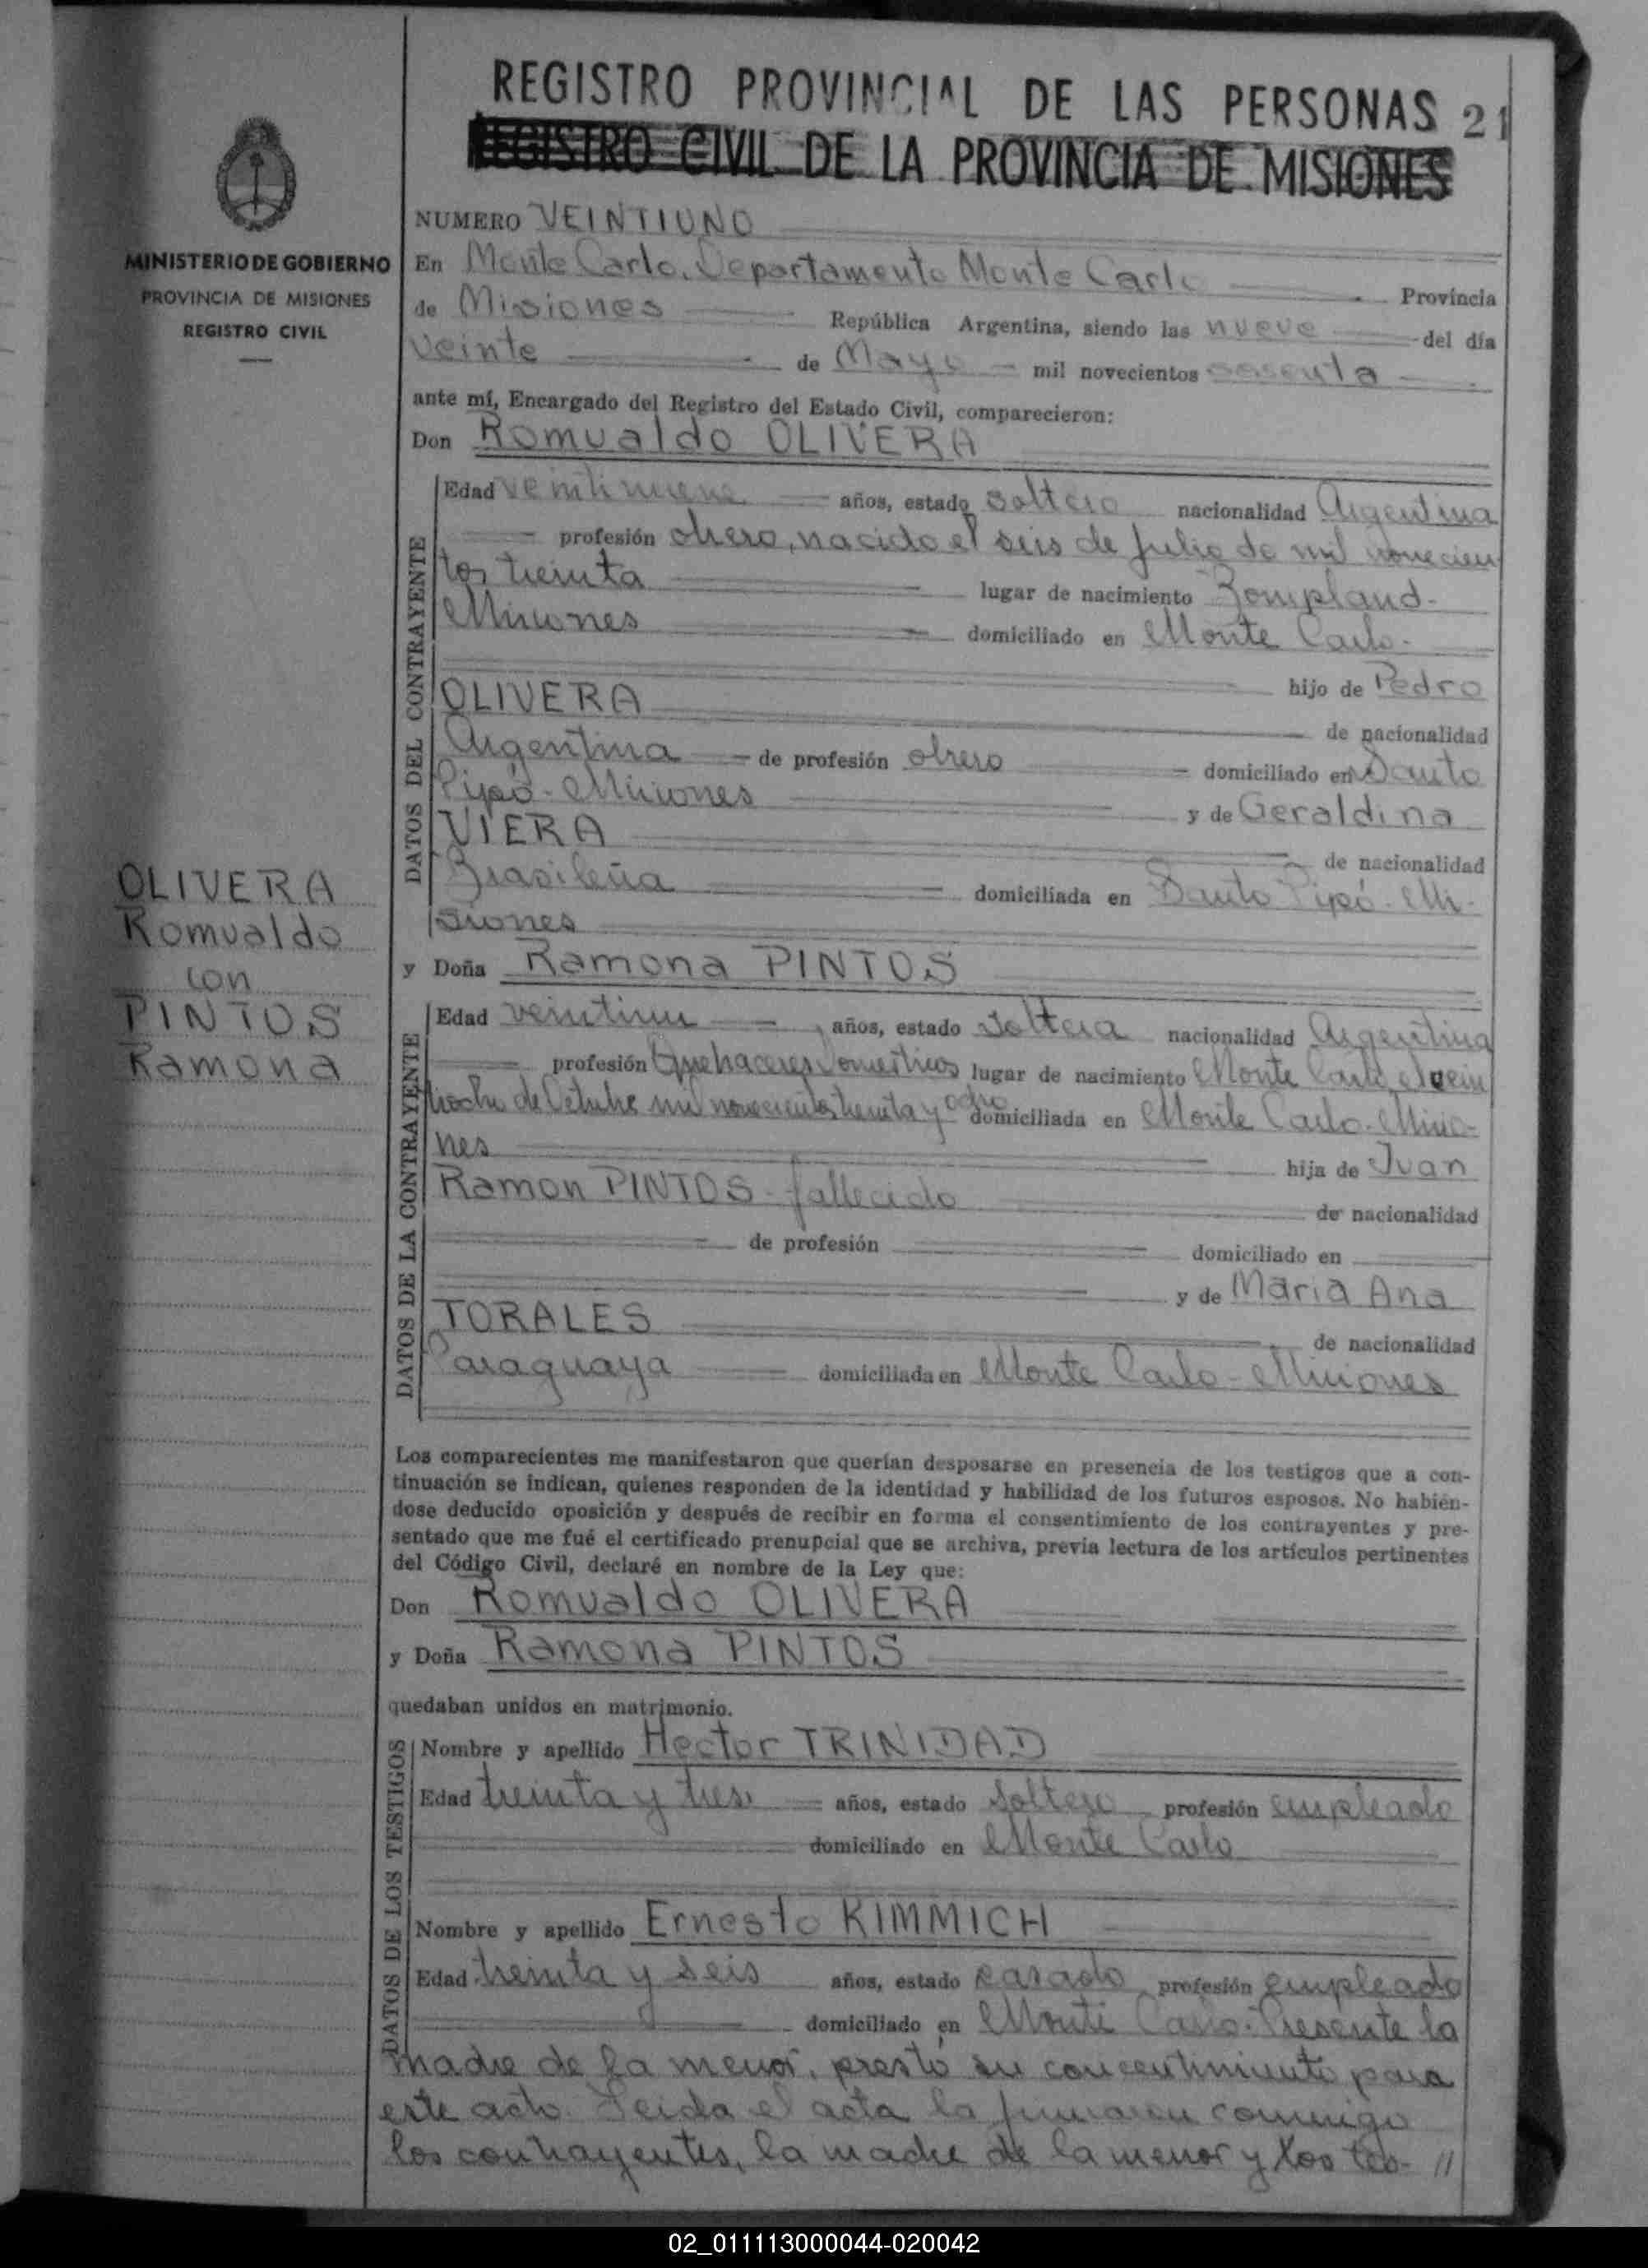 REGISTRO PROVINCIAL DE LAS PERSONAS 21
REGISTRO CIVIL DE LA PROVINCIA DE MISIONES
MINISTERIO DE GOBIERNO
PROVINCIA DE MISIONES
REGISTRO CIVIL
OLIVERA
Romualdo
con
PINTOS
Ramona
NUMERO VEINTIUNO
En Monte Carlo, Departamento Monte Carlo Provincia
de Misiones República Argentina, siendo las nueve del día
veinte de Mayo mil novecientos sesenta
ante mí, Encargado del Registro del Estado Civil, comparecieron:
Don Romualdo OLIVERA
DATOS DEL CONTRAYENTE
Edad veintinueve años, estado soltero nacionalidad Argentina
profesión obrero, nacido el seis de julio de mil novecien
tos treinta lugar de nacimiento Bompland-
Misiones domiciliado en Monte Carlo-
hijo de Pedro
OLIVERA de nacionalidad
Argentina de profesión obrero domiciliado en Santo
Pipó-Misiones y de Geraldina
VIERA de nacionalidad
Brasileña domiciliada en Santo Pipó-Mi-
siones
y Doña Ramona PINTOS
DATOS DE LA CONTRAYENTE
Edad veintiun años, estado soltera nacionalidad Argentina
profesión Quehaceres Domesticos lugar de nacimiento Monte Carlo el vein
tiocho de Octubre mil novecientos treinta y ocho domiciliada en Monte Carlo-Misio-
nes hija de Juan
Ramon PINTOS-fallecido de nacionalidad
de profesión domiciliado en
y de Maria Ana
TORALES de nacionalidad
Paraguaya domiciliada en Monte Carlo-Misiones
Los comparecientes me manifestaron que querían desposarse en presencia de los testigos que a con-
tinuación se indican, quienes responden de la identidad y habilidad de los futuros esposos. No habién-
dose deducido oposición y después de recibir en forma el consentimiento de los contrayentes y pre-
sentado que me fué el certificado prenupcial que se archiva, previa lectura de los artículos pertinentes
del Código Civil, declaré en nombre de la Ley que:
Don Romualdo OLIVERA
y Doña Ramona PINTOS
quedaban unidos en matrimonio.
DATOS DE LOS TESTIGOS
Nombre y apellido Hector TRINIDAD
Edad treinta y tres años, estado soltero profesión empleado
domiciliado en Monte Carlo
Nombre y apellido Ernesto KIMMICH
Edad treinta y seis años, estado casado profesión empleado
domiciliado en Monte Carlo. Presente la
madre de la menor, prestó su concentimiento para
este acto. Leida el acta la firmaron conmigo
los contrayentes, la madre de la menor y los tes- //
02_011113000044-020042